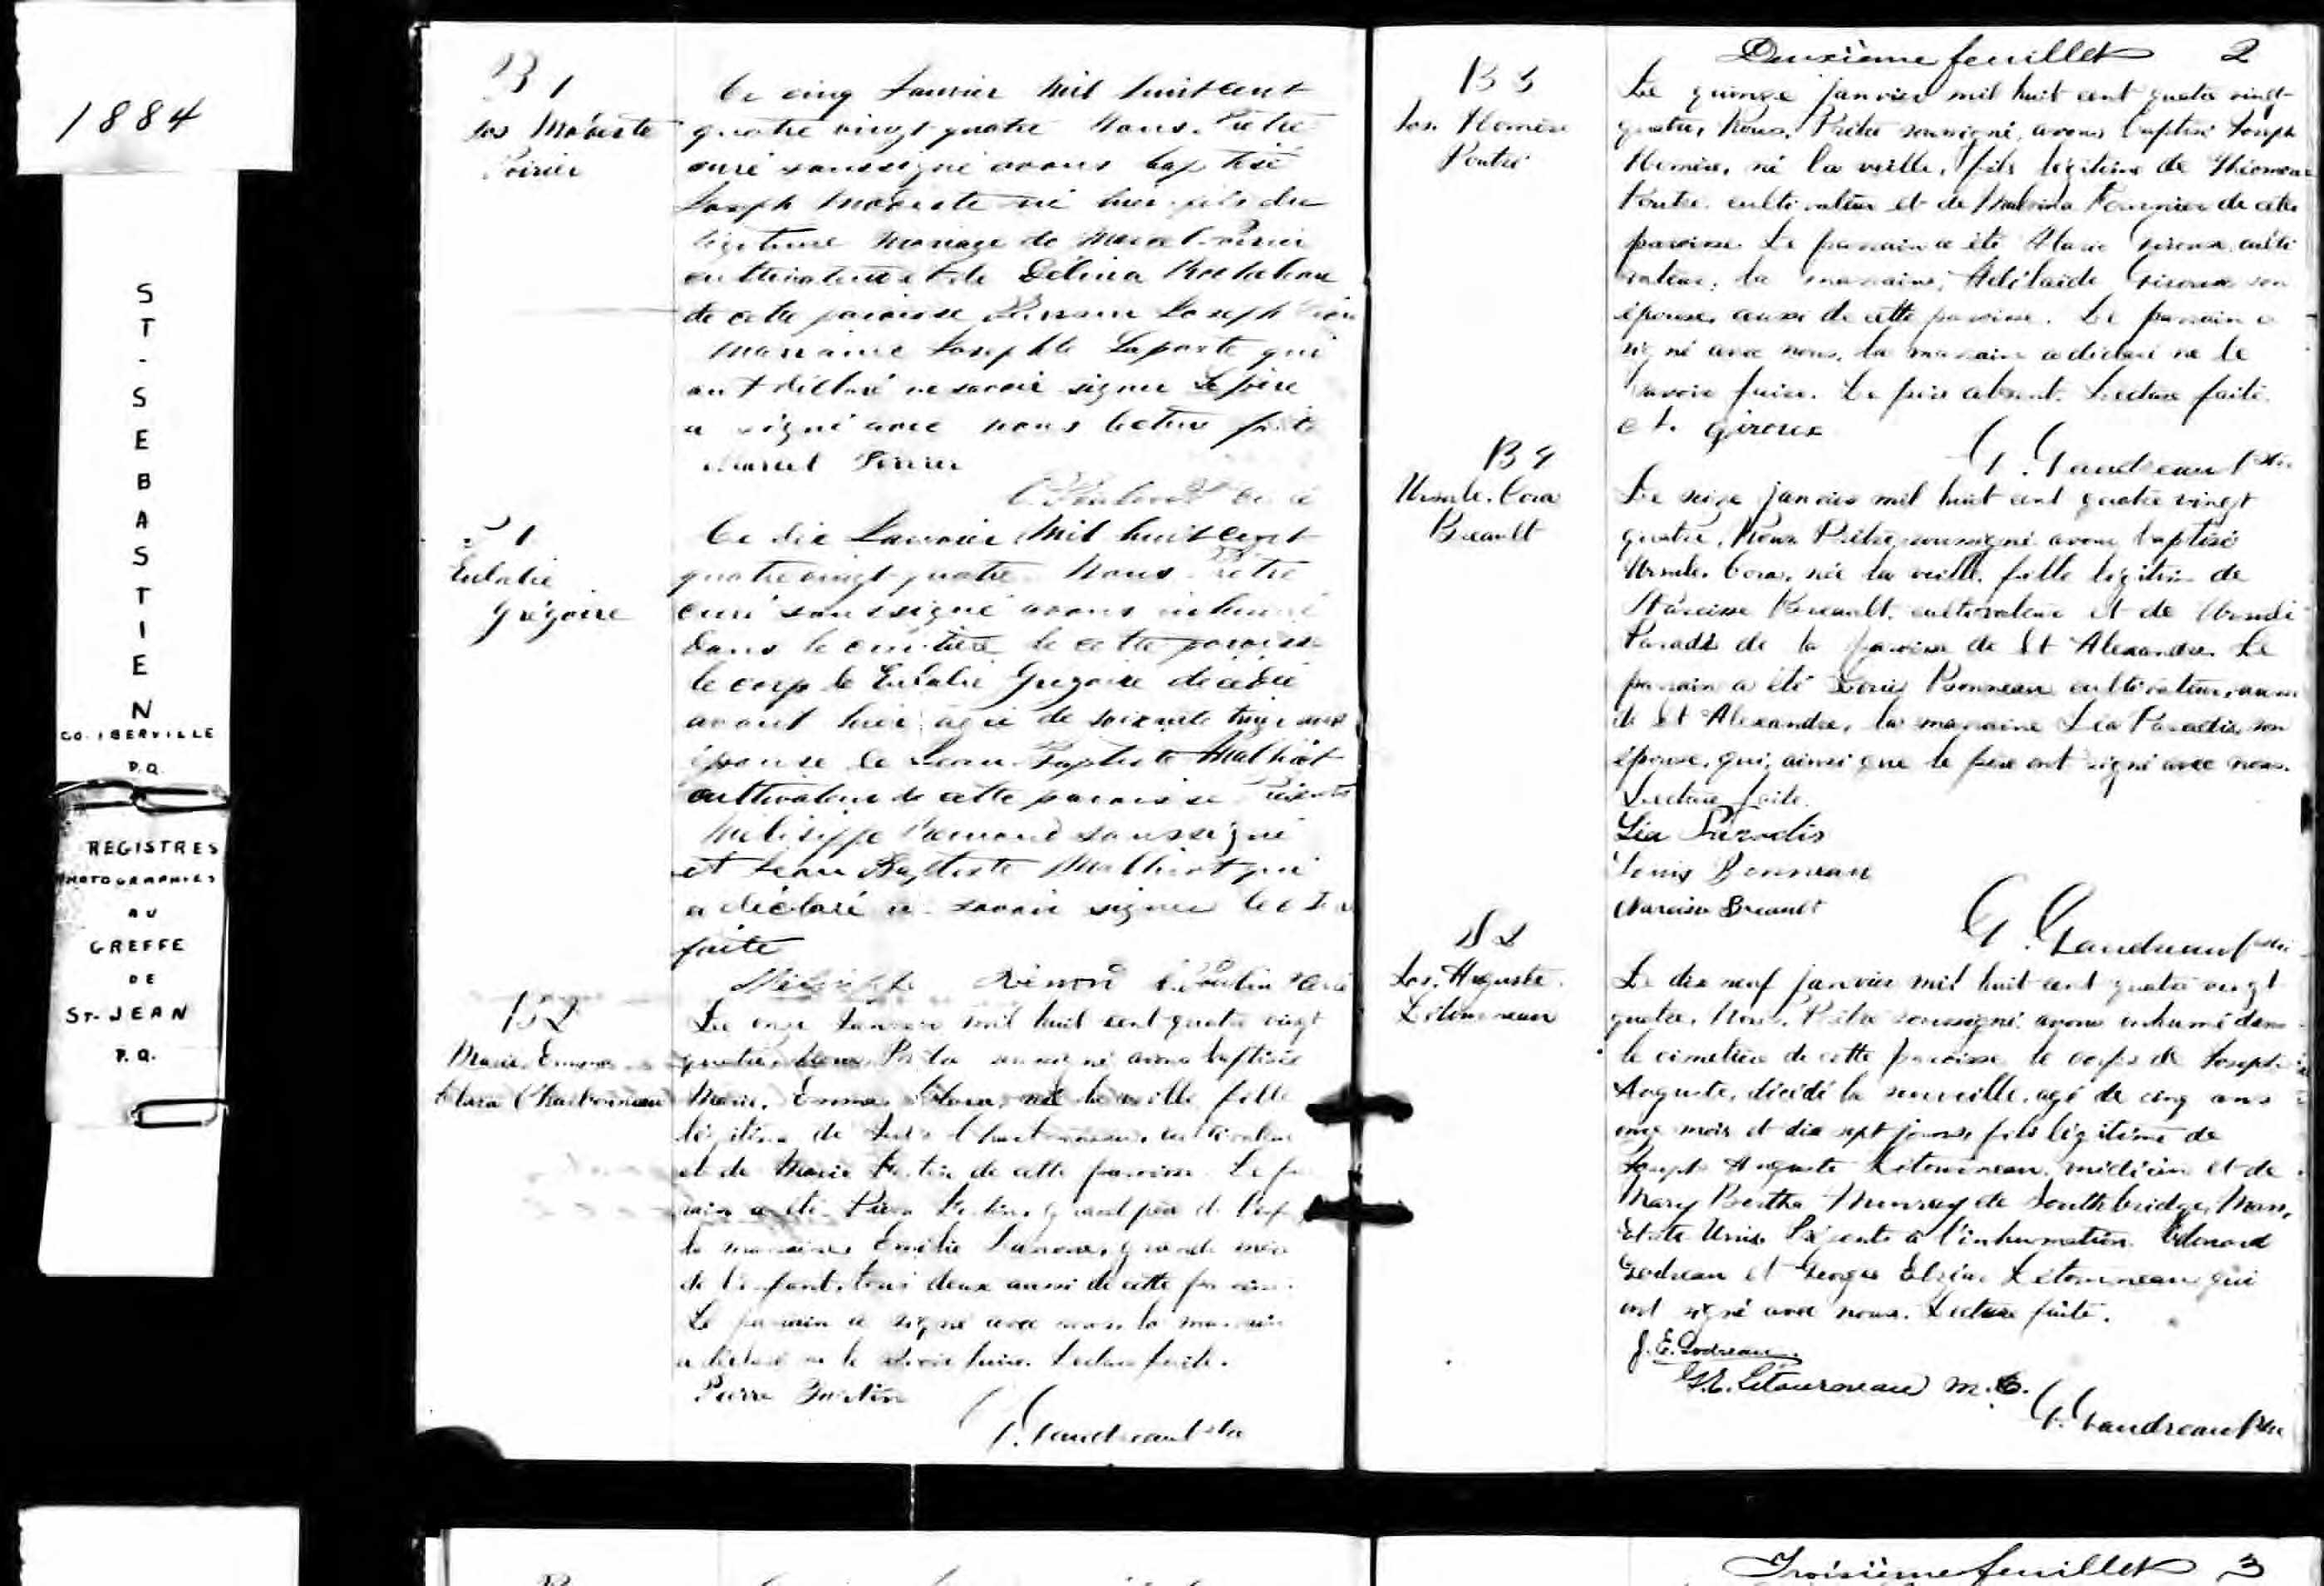 1884
ST-SEBASTIEN
CO. IBERVILLE
P.Q.
REGISTRES
PHOTOGRAPHIES
AU
GREFFE
DE
ST-JEAN
P.Q.
B 1
Jos Modeste
Poirier
Ce cinq Janvier mil huit cent
quatre vingt quatre Nous Prêtre
curé soussigné avons baptisé
Joseph Modeste né hier fils du
légitime mariage de Marcel Poirier
cultivateur et de Délina
de cette paroisse Parrain Joseph
Marraine Josephte Laporte qui
ont déclaré ne savoir signer Le père
a signé avec nous lecture faite
Marcel Poirier
S 1
Eulalie
Grégoire
Ce dix Janvier mil huit cent
quatre vingt quatre Nous Prêtre
curé soussigné avons inhumé
dans le cimetière de cette paroisse
le corps de Eulalie Grégoire décédée
avant hier agée de soixante treize ans
épouse de Jean Baptiste Malhiot
cultivateur de cette paroisse Présents
soussigné
et Jean Baptiste Malhiot qui
a déclaré ne savoir signer lecture
faite
B 2
Marie Emma
Clara Charbonneau
Le onze Janvier mil huit cent quatre vingt
quatre, Nous Prêtre soussigné avons baptisé
Marie, Emma Clara, née la veille fille
légitime de Charbonneau, cultivateur
et de Marie de cette paroisse. Le par
rain a été Pierre grand père de l'enfant
la marraine Emélie grande mère
de l'enfant, tous deux aussi de cette paroisse.
Le parrain a signé avec nous la marraine
a déclaré ne le savoir faire. Lecture faite.
Pierre
G. Gaudreau Ptre
Deuxième feuillet 2
B 3
Jos. Homère
Poutré
Le quinze janvier mil huit cent quatre vingt-
quatre, Nous, Prêtre soussigné, avons baptisé Joseph
Homère, né la veille, fils légitime de
Poutré, cultivateur et de Malvina Fournier de cette
paroisse. Le parrain a été Giroux, culti
vateur, la marraine, Adélaïde Giroux son
épouse, aussi de cette paroisse. Le parrain a
signé avec nous, la marraine a déclaré ne le
savoir faire. Le père absent. Lecture faite.
Giroux
G. Gaudreau Ptre
B 4
Ursule. Cora
Breault
Le seize janvier mil huit cent quatre vingt
quatre, Nous Prêtre, soussigné avons baptisé
Ursule Cora, née la veille, fille légitime de
Narcisse Breault, cultivateur et de
Paradis de la paroisse de St Alexandre. Le
parrain a été Louis Bonneau cultivateur, aussi
de St Alexandre, la marraine Léa Paradis, son
épouse, qui, ainsi que le père ont signé avec nous.
Lecture faite.
Léa Paradis
Louis Bonneau
Narcisse Breault
G. Gaudreau Ptre
S 2
Jos. Auguste
Létourneau
Le dix neuf janvier mil huit cent quatre vingt
quatre, Nous, Prêtre soussigné, avons inhumé dans
le cimetière de cette paroisse le corps de Joseph
Auguste, décédé la surveille, agé de cinq ans
onze mois et dix sept jours, fils légitime de
Joseph Auguste Létourneau, médecin et de
Mary Bertha Munray de Southbridge, Mass,
Etats Unis. Présents à l'inhumation Edouard
Godreau et Georges Elzéar Létourneau qui
ont signé avec nous. Lecture faite.
J. E. Godreau.
G. E. Létourneau
G. Gaudreau Ptre
Troisième feuillet 3